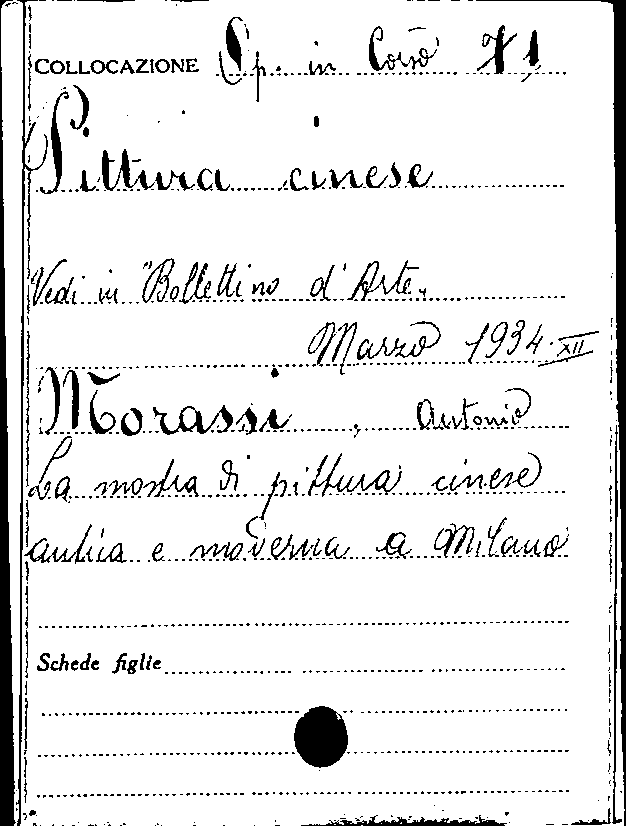 COLLOCAZIONE Sp. in Corso
Pittura cinese
Vedi in "Bollettino d'Arte„
Marzo 1934. XII
Morassi, Antonio
La mostra di pittura cinese
antica e moderna a Milano
Schede figlie